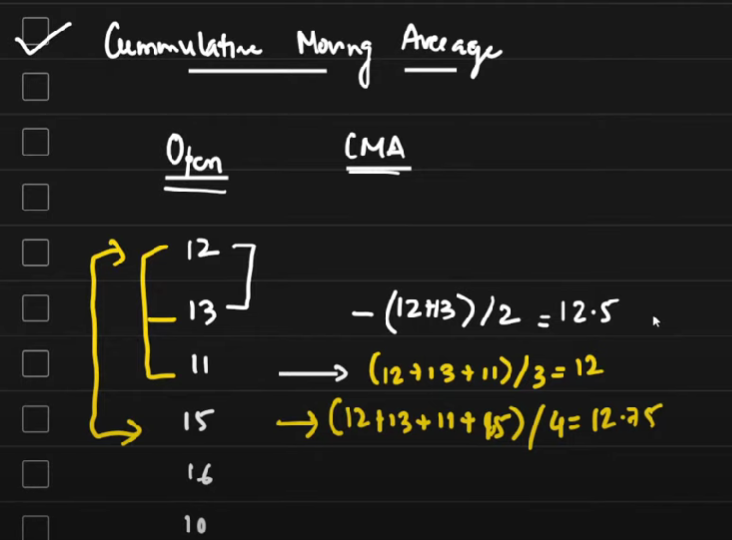 Cummulative Moving Average
Open CMA
12
13 - (12+13)/2 = 12.5
11 → (12+13+11)/3 = 12
15 → (12+13+11+15)/4 = 12.75
16
10